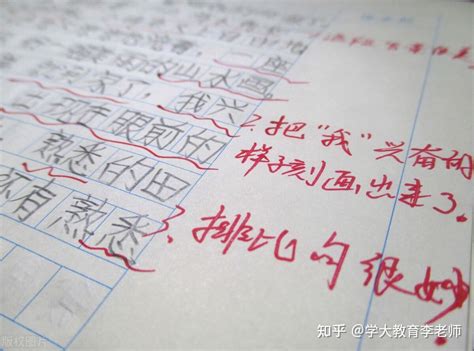 的山水画
了，我兴
出现在眼前的
熟悉的田
还有熟悉
把“我”兴奋的
样子刻画出来了。
排比句很妙
知乎 @学大教育李老师
版权图片